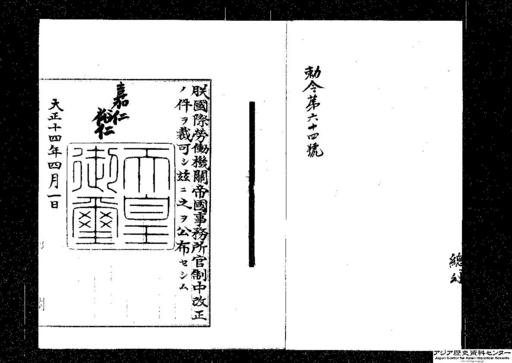 勅令第六十四號
朕國際勞働機關帝國事務所官制中改正
ノ件ヲ裁可シ茲ニ之ヲ公布セシム
嘉仁
裕仁
天皇御璽
大正十四年四月一日
アジア歴史資料センター
Japan Center for Asian Historical Records